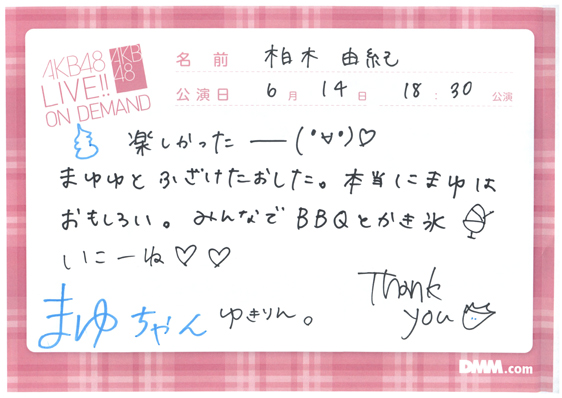 AKB48
LIVE!!
ON DEMAND
AKB
48
名前 柏木 由紀
公演日 6月 14日 18:30 公演
楽しかったー(°∀°)♡
まゆゆと ふざけたおした。本当にまゆは
おもしろい。みんなで BBQとかき氷
いこーね♡♡
まゆちゃん ゆきりん。
Thank
you
DMM.com